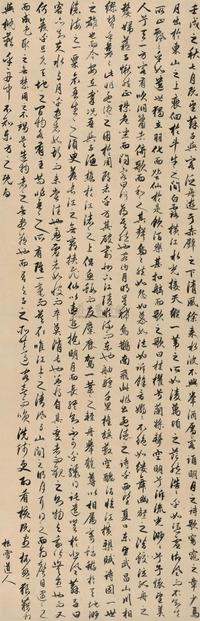 壬戌之秋七月既望蘇子與客泛舟遊于赤壁之下清風徐來水波不興舉酒屬客誦明月之詩歌窈窕之章少焉
月出於東山之上徘徊於斗牛之間白露橫江水光接天縱一葦之所如凌萬頃之茫然浩浩乎如馮虛御風而不知其
所止飄飄乎如遺世獨立羽化而登仙於是飲酒樂甚扣舷而歌之歌曰桂棹兮蘭槳擊空明兮泝流光渺渺兮予懷望美
人兮天一方客有吹洞簫者倚歌而和之其聲嗚嗚然如怨如慕如泣如訴餘音嫋嫋不絕如縷舞幽壑之潛蛟泣孤舟之
嫠婦蘇子愀然正襟危坐而問客曰何為其然也客曰月明星稀烏鵲南飛此非曹孟德之詩乎西望夏口東望武昌山川相
繆鬱乎蒼蒼此非孟德之困於周郎者乎方其破荊州下江陵順流而東也舳艫千里旌旗蔽空釃酒臨江橫槊賦詩固一世
之雄也而今安在哉況吾與子漁樵於江渚之上侶魚蝦而友麋鹿駕一葉之扁舟舉匏樽以相屬寄蜉蝣於天地渺
滄海之一粟哀吾生之須臾羨長江之無窮挾飛仙以遨遊抱明月而長終知不可乎驟得託遺響於悲風蘇子曰
客亦知夫水與月乎逝者如斯而未嘗往也盈虛者如彼而卒莫消長也蓋將自其變者而觀之則物與我皆無盡也而又
何羨乎且夫天地之間物各有主苟非吾之所有雖一毫而莫取惟江上之清風與山間之明月耳得之而為聲目遇之
而成色取之無禁用之不竭是造物者之無盡藏也而吾與子之所共適客喜而笑洗盞更酌肴核既盡杯盤狼藉相
與枕藉乎舟中不知東方之既白
雪道人